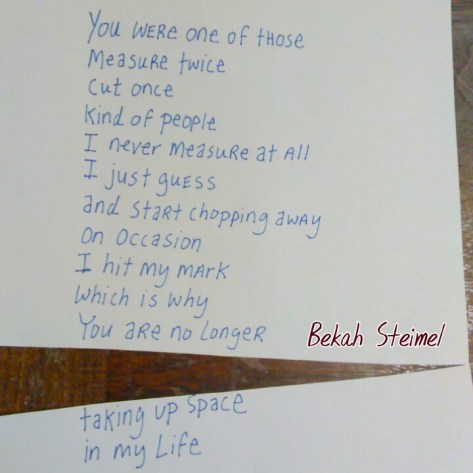 You were one of those
Measure twice
Cut once
Kind of people
I never measure at all
I just guess
and start chopping away
On occasion
I hit my mark
Which is why
You are no longer
Bekah Steimel
taking up space
in my Life